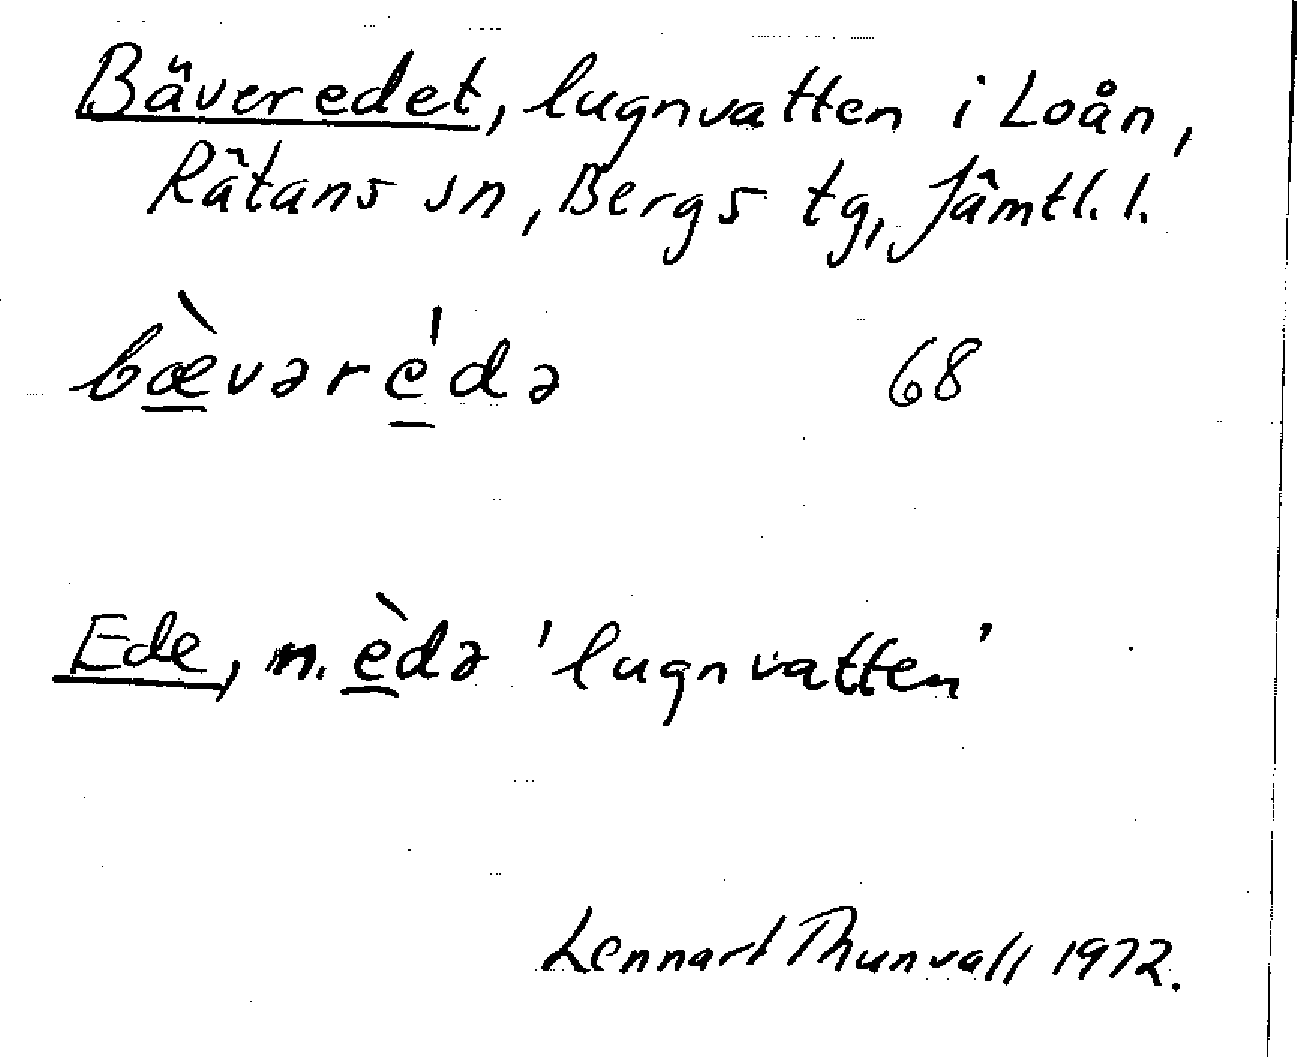 Bäveredet, lugnvatten i Loån,
Rätans sn, Bergs tg, Jämtl. l.
bæ̀vəre̍də 68
Ede, n. èdə 'lugnvatten'
Lennart Thunvall 1972.